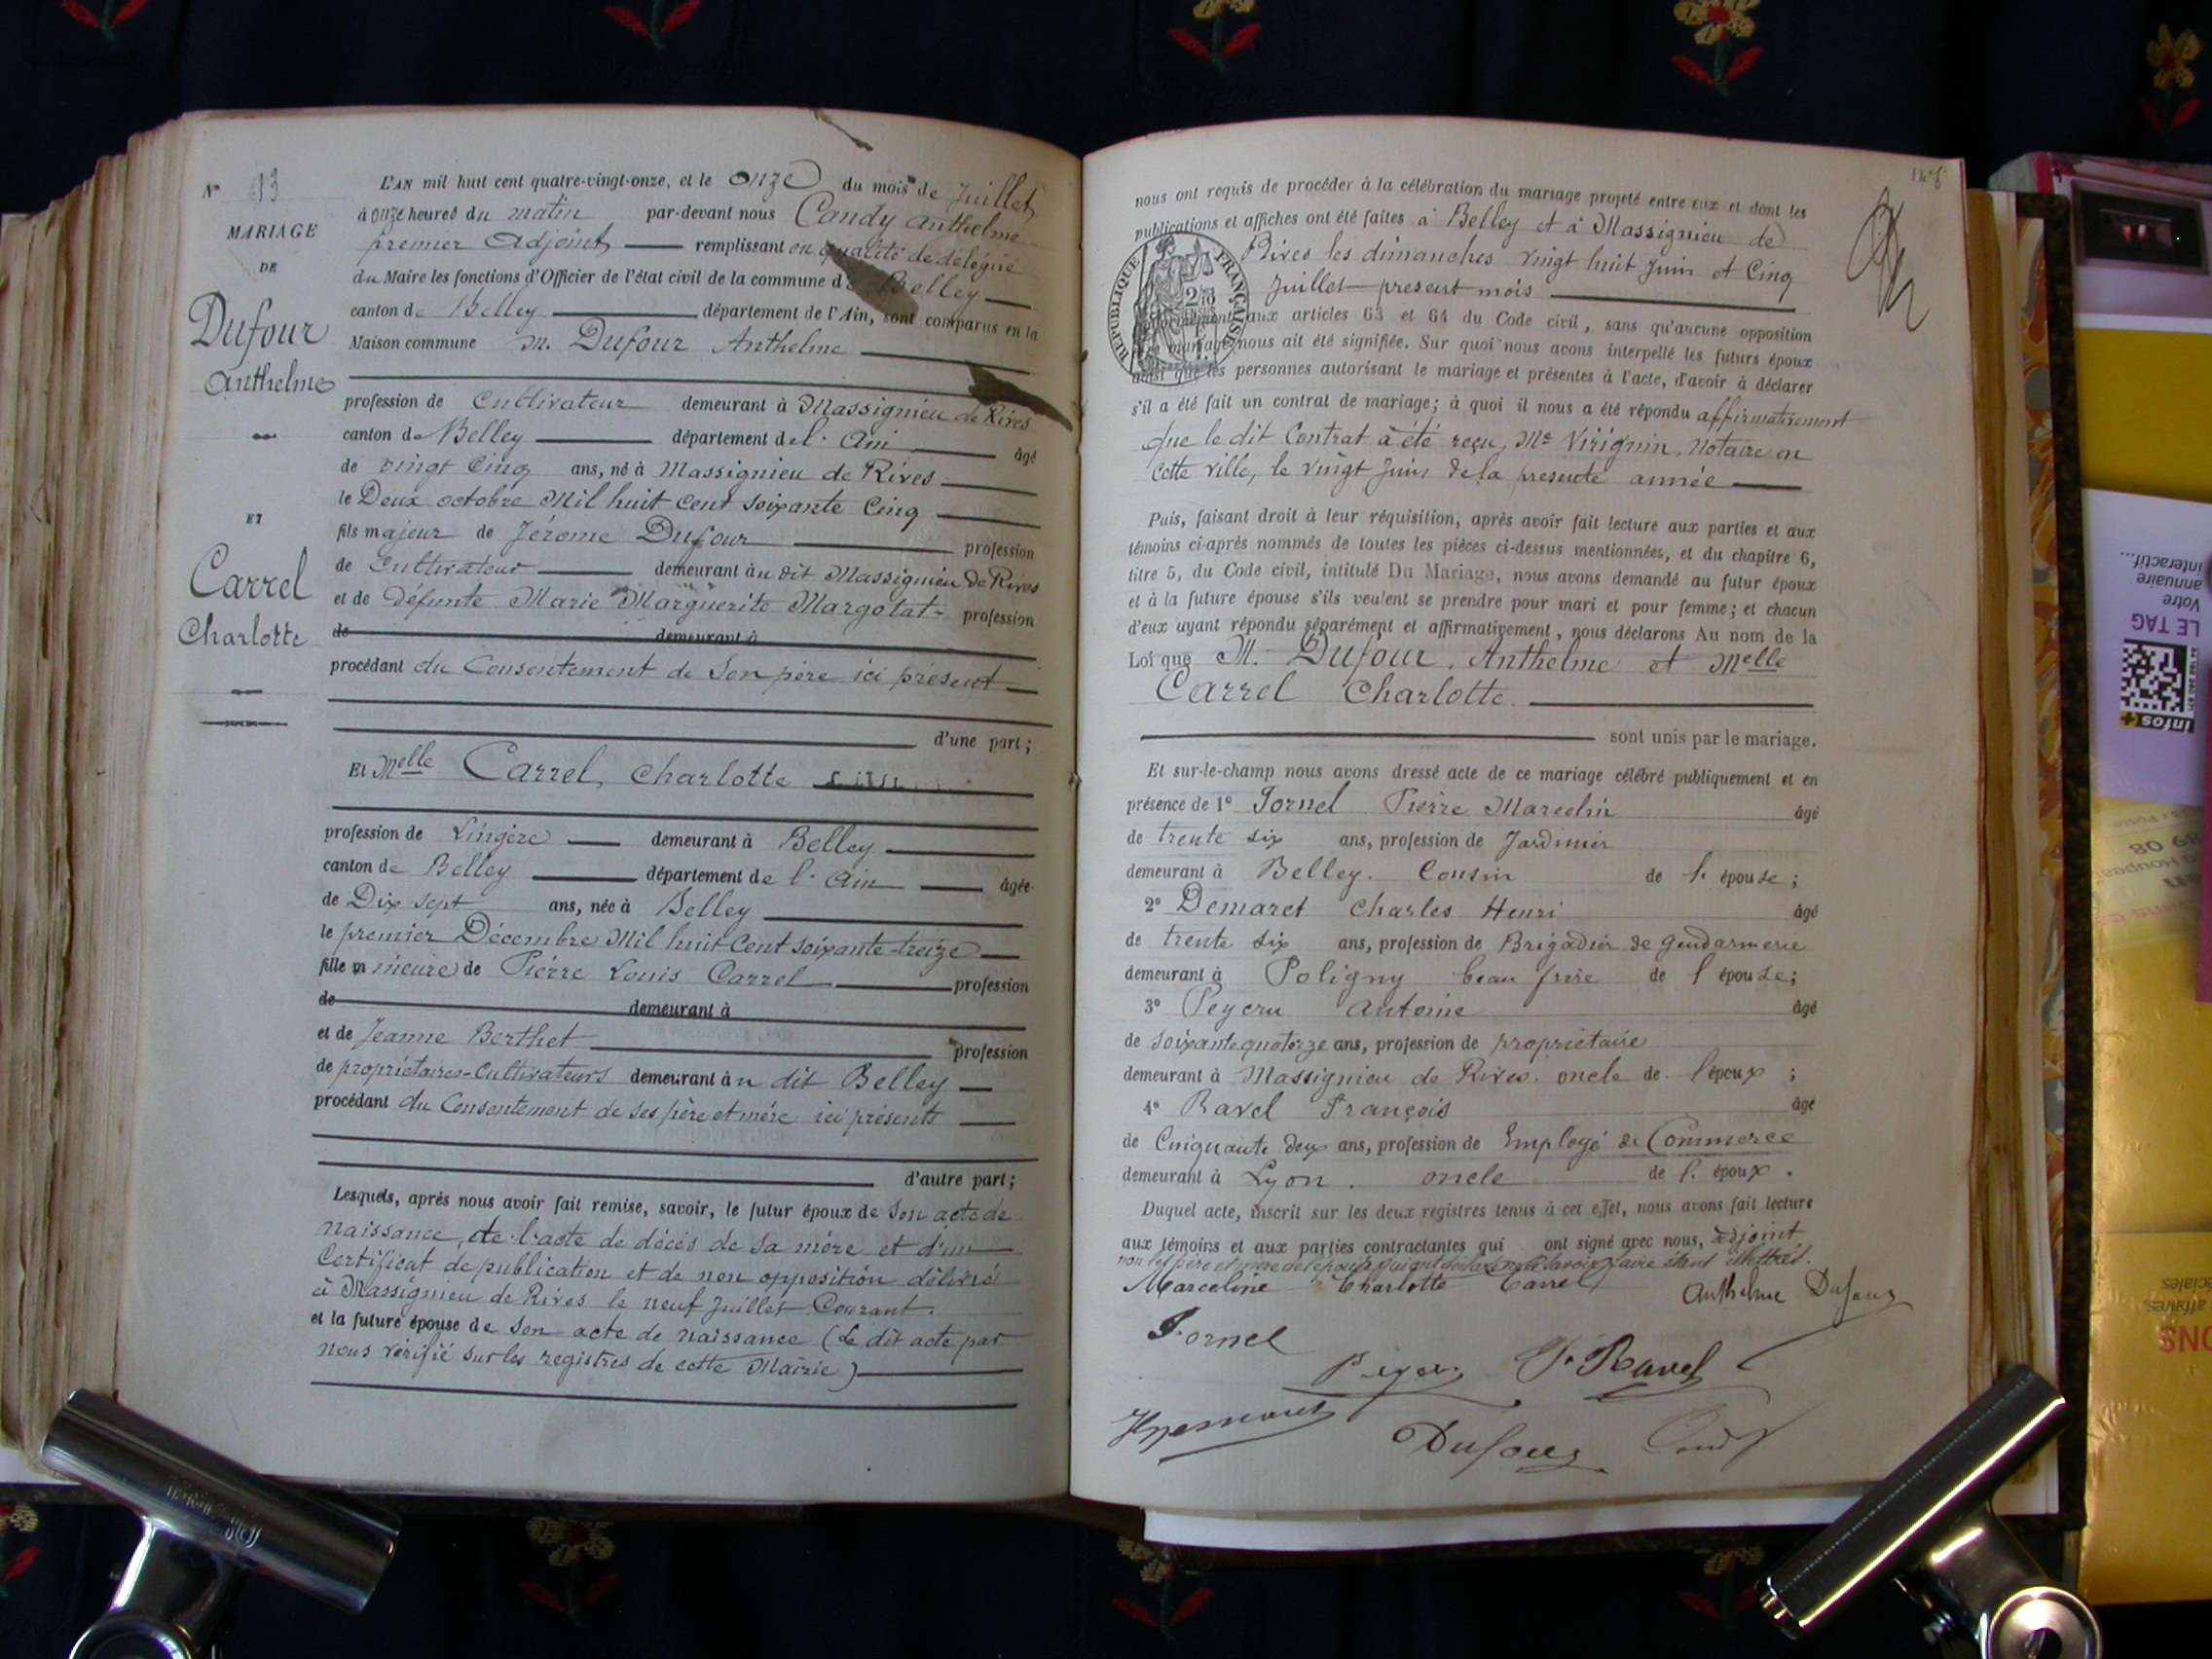 N° 13
MARIAGE
DE
Dufour
Anthelme
ET
Carrel
Charlotte
L'AN mil huit cent quatre-vingt-onze, et le onze du mois de Juillet
à onze heures du matin par-devant nous Candy Anthelme
premier Adjoint remplissant en qualité de délégué
du Maire les fonctions d'Officier de l'état civil de la commune de Belley
canton de Belley département de l'Ain, sont comparus en la
Maison commune M. Dufour Anthelme
profession de Cultivateur demeurant à Massignieu de Rives
canton de Belley département de l' Ain âgé
de vingt Cinq ans, né à Massignieu de Rives
le Deux octobre Mil huit Cent soixante Cinq
fils majeur de Jérome Dufour profession
de Cultivateur demeurant au dit Massignieu de Rives
et de défunte Marie Marguerite Margotat profession
de demeurant à
procédant du Consentement de Son père ici présent
d'une part;
Et Melle Carrel, Charlotte
profession de Lingère demeurant à Belley
canton de Belley département de l' Ain âgée
de Dix sept ans, née à Belley
le premier Décembre Mil huit Cent soixante-treize
fille mineure de Pierre Louis Carrel profession
de demeurant à
et de Jeanne Berthet profession
de propriétaires-Cultivateurs demeurant au dit Belley
procédant du Consentement de ses père et mère ici présents
d'autre part;
Lesquels, après nous avoir fait remise, savoir, le futur époux de Son acte de
naissance, de l'acte de décès de sa mère et d'un
Certificat de publication et de non opposition délivré
à Massignieu de Rives le neuf Juillet Courant.
et la future épouse de Son acte de naissance (Le dit acte par
nous vérifié sur les registres de cette Mairie)
nous ont requis de procéder à la célébration du mariage projeté entre eux et dont les
publications et affiches ont été faites à Belley et à Massignieu de
Rives les dimanches vingt huit Juin et Cinq
Juillet present mois
RÉPUBLIQUE FRANÇAISE
aux articles 63 et 64 du Code civil, sans qu'aucune opposition
mariage nous ait été signifiée. Sur quoi nous avons interpellé les futurs époux
ainsi que les personnes autorisant le mariage et présentes à l'acte, d'avoir à déclarer
s'il a été fait un contrat de mariage; à quoi il nous a été répondu affirmativement
que le dit Contrat à été reçu, Me Virignin, Notaire en
cette ville, le vingt Juin de la presente année
Puis, faisant droit à leur réquisition, après avoir fait lecture aux parties et aux
témoins ci-après nommés de toutes les pièces ci-dessus mentionnées, et du chapitre 6,
titre 5, du Code civil, intitulé Du Mariage, nous avons demandé au futur époux
et à la future épouse s'ils veulent se prendre pour mari et pour femme; et chacun
d'eux ayant répondu séparément et affirmativement, nous déclarons Au nom de la
Loi que M. Dufour, Anthelme et Melle
Carrel Charlotte.
sont unis par le mariage.
Et sur-le-champ nous avons dressé acte de ce mariage célébré publiquement et en
présence de 1° Jornel Pierre Marcelin âgé
de trente six ans, profession de Jardinier
demeurant à Belley. Cousin de l'épouse;
2° Demaret Charles Henri âgé
de trente six ans, profession de Brigadier de gendarmerie
demeurant à Poligny beau frère de l'épouse;
3° Peycru Antoine âgé
de soixante quatorze ans, profession de propriétaire
demeurant à Massignieu de Rives. oncle de l'époux;
4° Ravel François âgé
de Cinquante deux ans, profession de Employé de Commerce
demeurant à Lyon. oncle de l'époux.
Duquel acte, inscrit sur les deux registres tenus à cet effet, nous avons fait lecture
aux témoins et aux parties contractantes qui ont signé avec nous, adjoint
Marceline Charlotte Carrel Anthelme Dufour
Jornel
F. Ravel
Dufour Candy
LE TAG
Votre
annuaire
interactif...
infos+